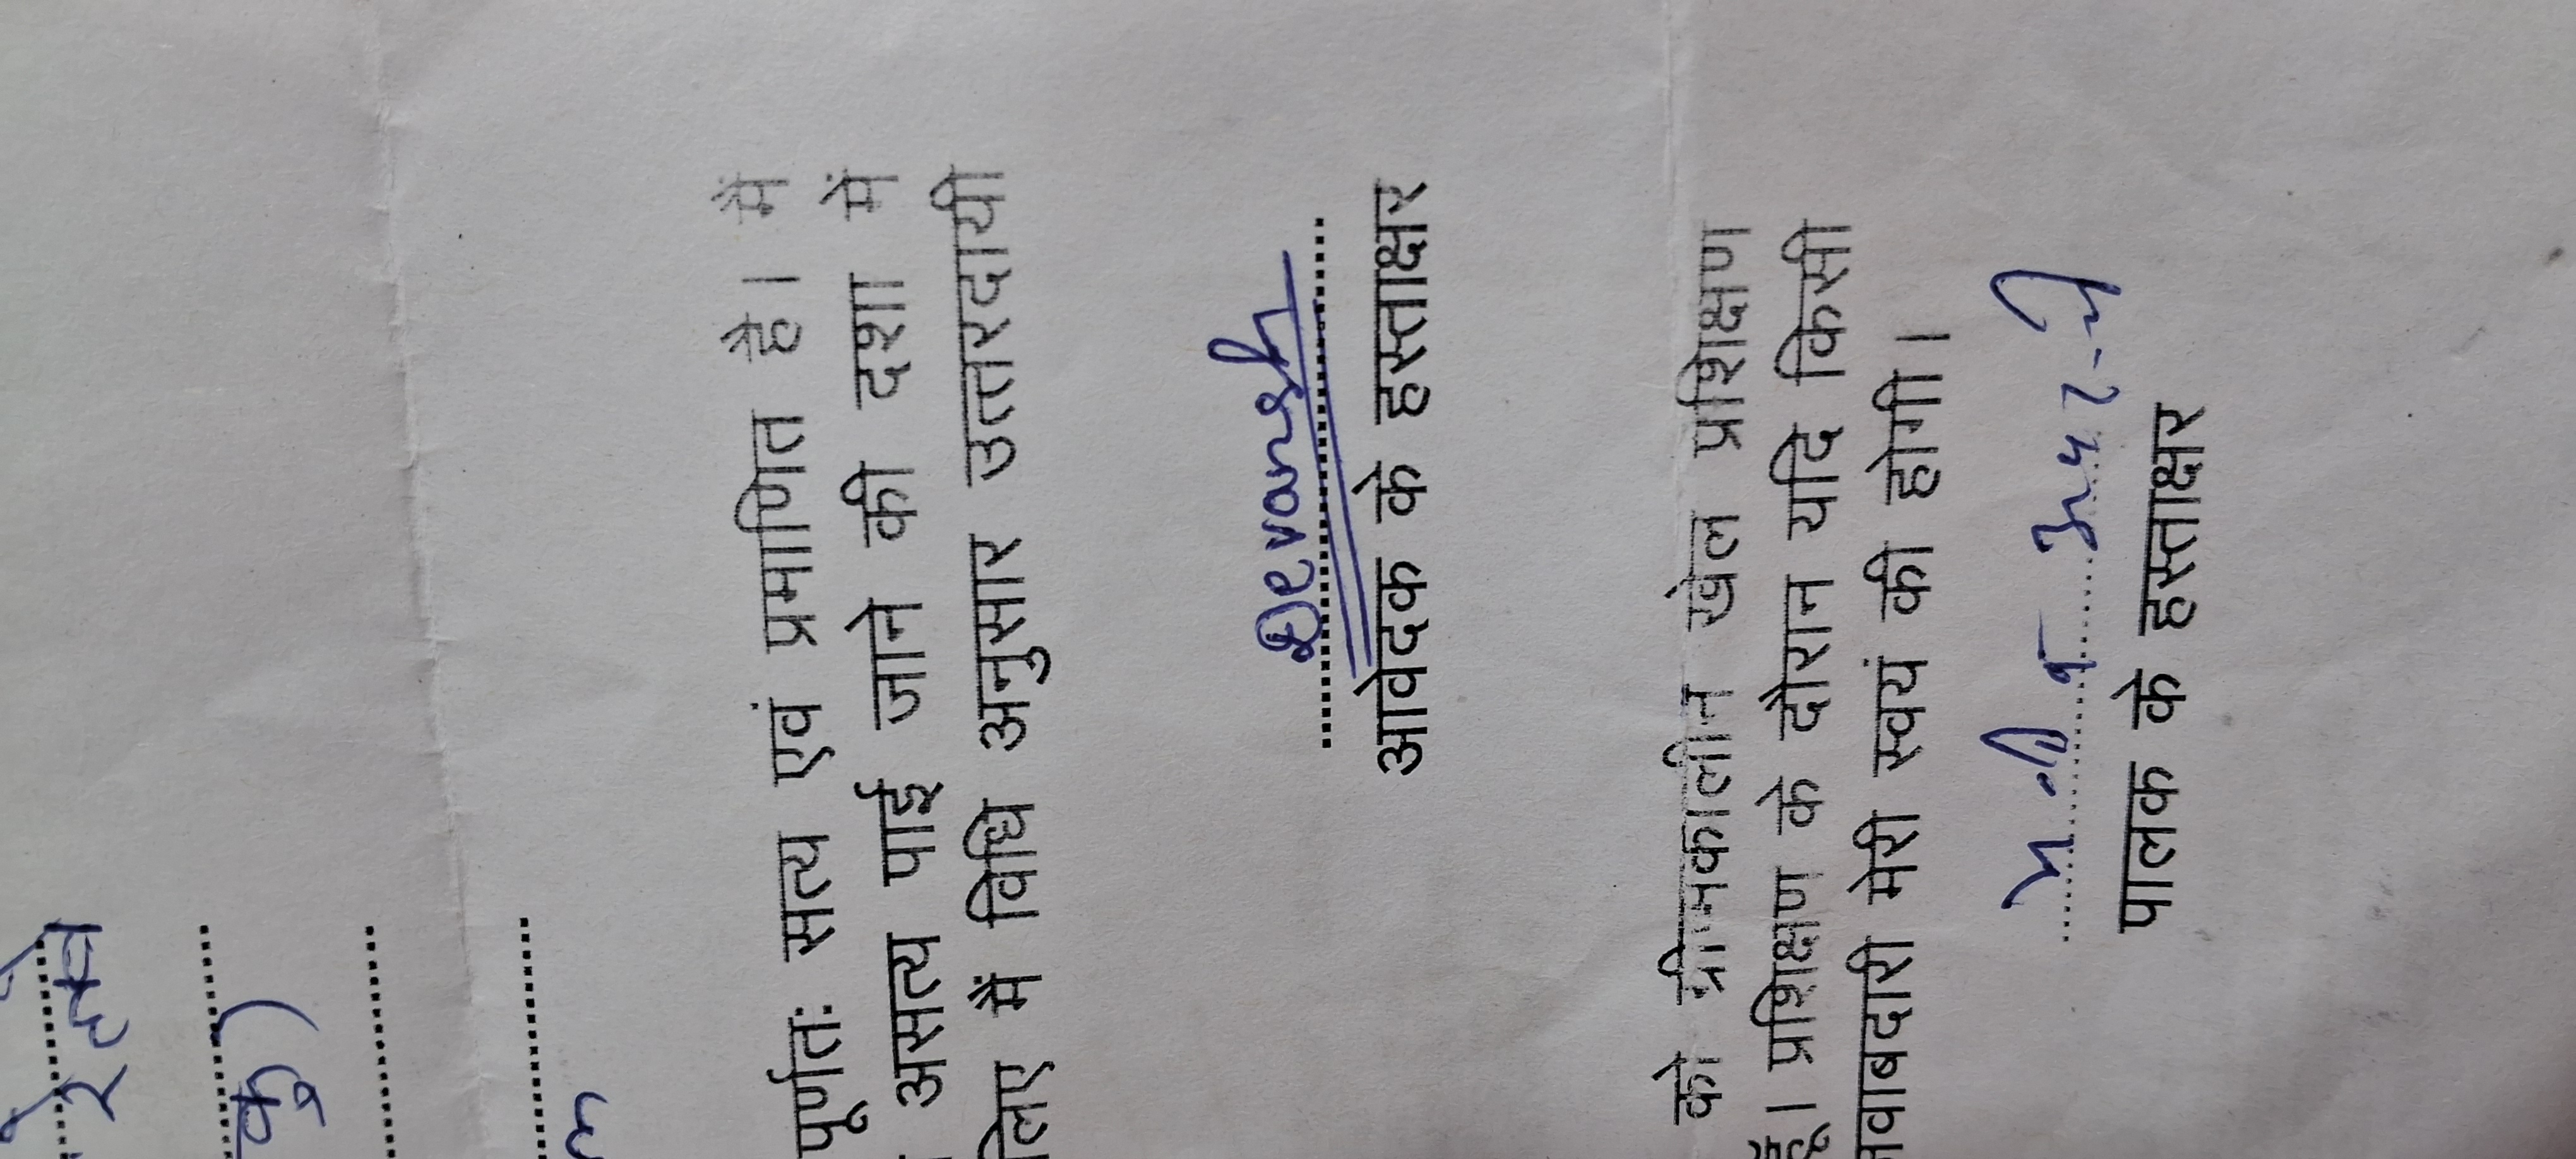 रेल्वे
पूर्णतः सत्य एवं प्रमाणित है। मैं
असत्य पाई जाने की दशा में
लिए मैं विधि अनुसार उत्तरदायी
Devansh
आवेदक के हस्ताक्षर
को ग्रीष्मकालीन खेल प्रशिक्षण
हूँ। प्रशिक्षण के दौरान यदि किसी
जवाबदारी मेरी स्वयं की होगी।
पालक के हस्ताक्षर